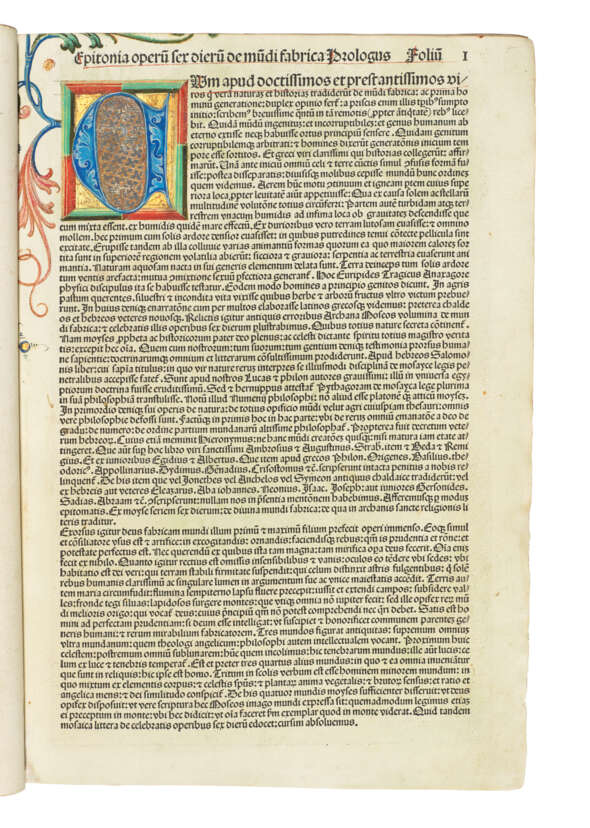 Epitoma operũ sex dierũ de mũdi fabrica Prologus Foliũ I
Vm apud doctissimos et prestantissimos vi⸗
ros q̃ verã naturas et historias tradiderũt de mũdi fabrica: ac prima ho
minũ generatione: duplex opinio fert̃: a priscis enim illis tpib⁹ sumpto
initio: scribem⁹ breuissime q̃ntũ in tã remotis (ꝓpter ãtiq̃tatẽ) reb⁹ lice
bit. Quidã mũdũ ingenitũ: et incorruptibilẽ: et genus humanum ab
eterno extisse necꝫ habuisse ortus principiũ sensere. Quidam genitum
corruptibilemqꝫ arbitrati: et homines dixerũt generatõnis inicium tem
pore esse sortitos. Et greci viri clarissimi qui historias collegerũt: affir⸗
marũt. Vnã ante iniciũ omniũ celi et terre cũctis simul ꝯfusis formã fu⸗
isse: postea disseparatis: diuisisqꝫ molibus cepisse mundũ hunc ordinẽ
quem videmus. Aerem huc motu ꝯtinuum et igneam ptem cuius supe
riora loca ꝓpter leuitatẽ aiũt appetiuisse: Qua ex causa solem ac stellarũ
multitudinẽ volutõne totius circũferri: Partem autẽ turbidam atqꝫ ter⸗
restrem vnacum humidis ad infima loca ob grauitatẽ descendisse que
cum mixta essent. ex humidis quidẽ mare effectũ. Ex durioribus vero terram lutosam euasisse: et omnino
mollem. hec primum cum solis ardore densior euasisset: in quibus putredines tenui cõtecte pellicula sunt
excitate. Erupisse tandem ab illa colluuie varias animantiũ formas quorum ea quo maiorem calorẽ sor
tita sunt in superiorẽ regionem volatilia abierũt: sicciora et grauiora: serpentia ac terrestria euaserunt ani
mantia. Naturam aquosam nacta in sui generis elementum delata sunt. Terra deinceps tum solis ardore
tum ventis arefacta: mutua ꝯmixtione sexuũ pfectiora generant̃. Hoc Euripides Tragicus Anaxagore
physici discipulus ita se habuisse testatur. Eodem modo homines a principio genitos dicunt. In agris
pastum querentes. siluestri et incondita vita vixisse quibus herbe et arbores fructus vltro victum prebue⸗
runt. In huius deniqꝫ enarratõne cum per multos elaborasse latinos grecosqꝫ videmus: pretereа chaldeos
os et hebreos veteres nouosqꝫ. Relictis igitur antiquis erroribus Archana Moseos volumina de mun
di fabrica: et celebratis illis operibus sex dierum plustrabimus. Quibus totius nature secreta cõtinent̃.
Nam moyses ꝓpheta ac historicorum pater deo plenus: ac celesti dictante spiritu totius magistro verita
tis: excepit hec oĩa. Quem cum nostrorum: tum suorum: tum gentium deniqꝫ testimonia prorsus huma
ne sapientie: doctrinarumqꝫ omnium et litterarum cõsultissimum prodiderunt. Apud hebreos Salomo⸗
nis liber: cui sapia titulus: in quo vir nature rerum interpres se illiusmodi disciplinã de mosayce legis pe⸗
netralibus accepisse fatet̃. Sunt apud nostros Lucas et philon autores grauissimi: illum in vniuersa egy⸗
ptiorum doctrina fuisse eruditissimũ. Sed et hermippus attestat̃ Pythagoram de mosayca lege plurima
in suã philosophiã transtulisse. Notũ illud Numenij philosophi: nõ aliud esse platonẽ q̃ꝫ atticũ moysen.
In primordio deniqꝫ sui operis de natura: de totius opificio mũdi velut agri cuiuspiam thesauri: omnis
vere philosophie defossi sunt. Factũqꝫ in primis hoc in hac parte: vbi de rerũ omniũ emanatõe a deo de
gradu: de numero: de ordine partium mundanarũ altissime philosophat̃. Propterea fuit decretum vete⸗
rum hebreorꝫ. Cuius etiã meminit Hieronymus: ne hanc mũdi creatõez quisqꝫ: nisi matura iam etate at⸗
tingeret. Que aũt sup hoc libro viri sanctissimi Ambrosius et Augustinus. Strab⁹. item et Beda et Remi
gius. Et ex iunioribus Egidius et Albertus. Que item apud grecos Philon. Origenes. Basilius. the⸗
odoric⁹. Appollinarius. Dydimus. Gẽnadius. Crisostomus ⁊c̃. scripserunt intacta penitus a nobis re⸗
linquent̃. De his item que vel Jonethes vel Anchelos vel Symeon antiquus chaldaice tradiderũt: vel
ex hebreis aut veteres Eleazarus. Aba iohannes. Neonius. Isaac. Joseph: aut iuniores Gersonides.
Sadias. Abraam ⁊c̃. ꝯscripserunt: nullam nos in p̃sentia mentõnem habebimus. Afferemusqꝫ p modũ
epitomatis. Ex moyse feriem sex dierum: de diuina mundi fabrica: de qua in archanis sancte religionis li
teris traditur.
Exorsus igitur deus fabricam mundi illum primũ et maximũ filium prefecit operi immenso. Eoqꝫ simul
et cõsiliatore vsus est et artifice: in excogitandis: ornandis: faciendisqꝫ rebus: qm̃ is prudentia et rõne: et
potestate perfectus est. Nec querendũ ex quibus ista tam magna: tam mirifica opa deus fecerit. Oĩa enĩ
fecit ex nihilo. Quanto igitur rectius est omissis insensibilibus et vanis: oculos eo tẽdere vbi sedes: vbi
habitatio est dei veri: qui terram stabili firmitate suspendit: qui celum distinxit astris fulgentibus: q̃ solẽ
rebus humanis clarissimũ ac singulare lumen in argumentum sue ac vnice maiestatis accẽdit. Terris au⸗
tem maria circumfudit: flumina sempiterno lapsu fluere precepit: iussit et extendi campos: subsidere val⸗
les: fronde tegi siluas: lapidosos surgere montes: que vtiqꝫ omnia nõ iupiter fecit: sed ille opifex rerꝫ mũ
di melioris origo: qui vocat̃ deus cuius p̃ncipiũ qm̃ nõ potest comprehendi nec q̃ri debet. Satis est ho⸗
mini ad perfectam prudentiam: si deum esse intelligat: vt suscipiet et honorificet communem parentẽ ge⸗
neris humani: et rerum mirabilium fabricatorem. Tres mundos figurat antiquitas: supremum omnium
vltramundanum: quem theologi angelicum: philosophi autem intellectualem vocant. Proximum huic
celestem: postremum omniũ sublunarem: hũc quem incolimus: hic tenebrarum mundus: ille aũt lucis: ce
lum ex luce et tenebris temperat̃. Est et preter tres quartus alius mundus: in quo et ea omnia inueniãtur
que sunt in reliquis: hic ipse est homo. Tritum in scolis verbum est esse hominem minorem mundum: in
quo mixtum ex elementis corpus: et celestis spũs: et plantarꝫ anima vegetalis: et brutorꝫ sensus: et ratio et
angelica mens: et dei similitudo conspicit̃. De his quatuor mundis moyses sufficienter disseruit: vt deus
opifex disposuit: vt vere scriptura hec Moseos imago mundi expressa sit: quemadmodum legimus etiam
ei preceptum in monte: vbi hec didicit: vt oĩa faceret ẜm exemplar quod in monte viderat. Quid tandem
mosaica littera de celebratis operibus sex dierũ edocet: cursim absoluemus.